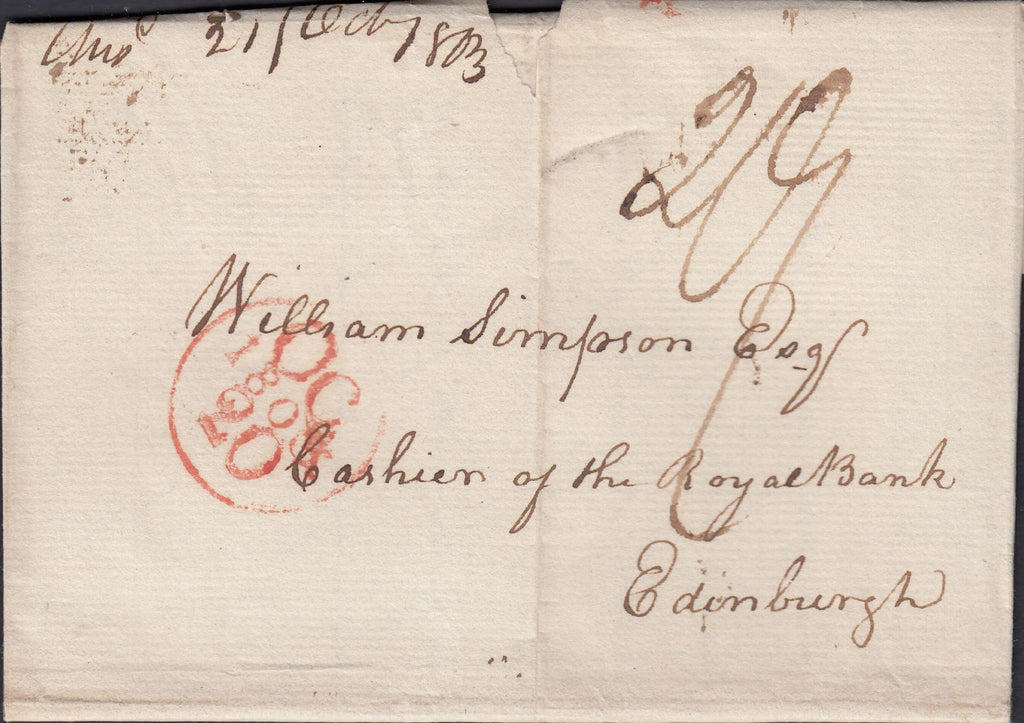 Ansd 21st Octr 1803
William Simpson Esqr
Cashier of the Royal Bank
Edinburgh
OC
20